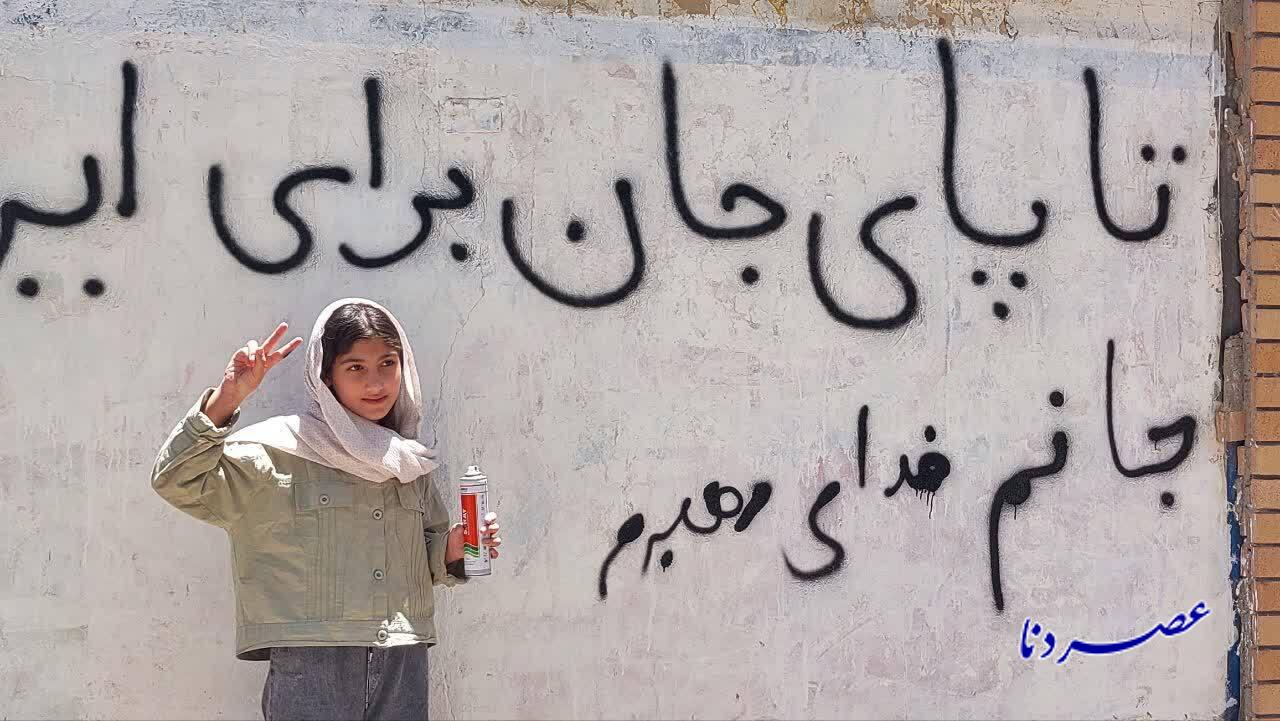 تا پای جان برای ایر
جانم فدای رهبرم
عصر دنا